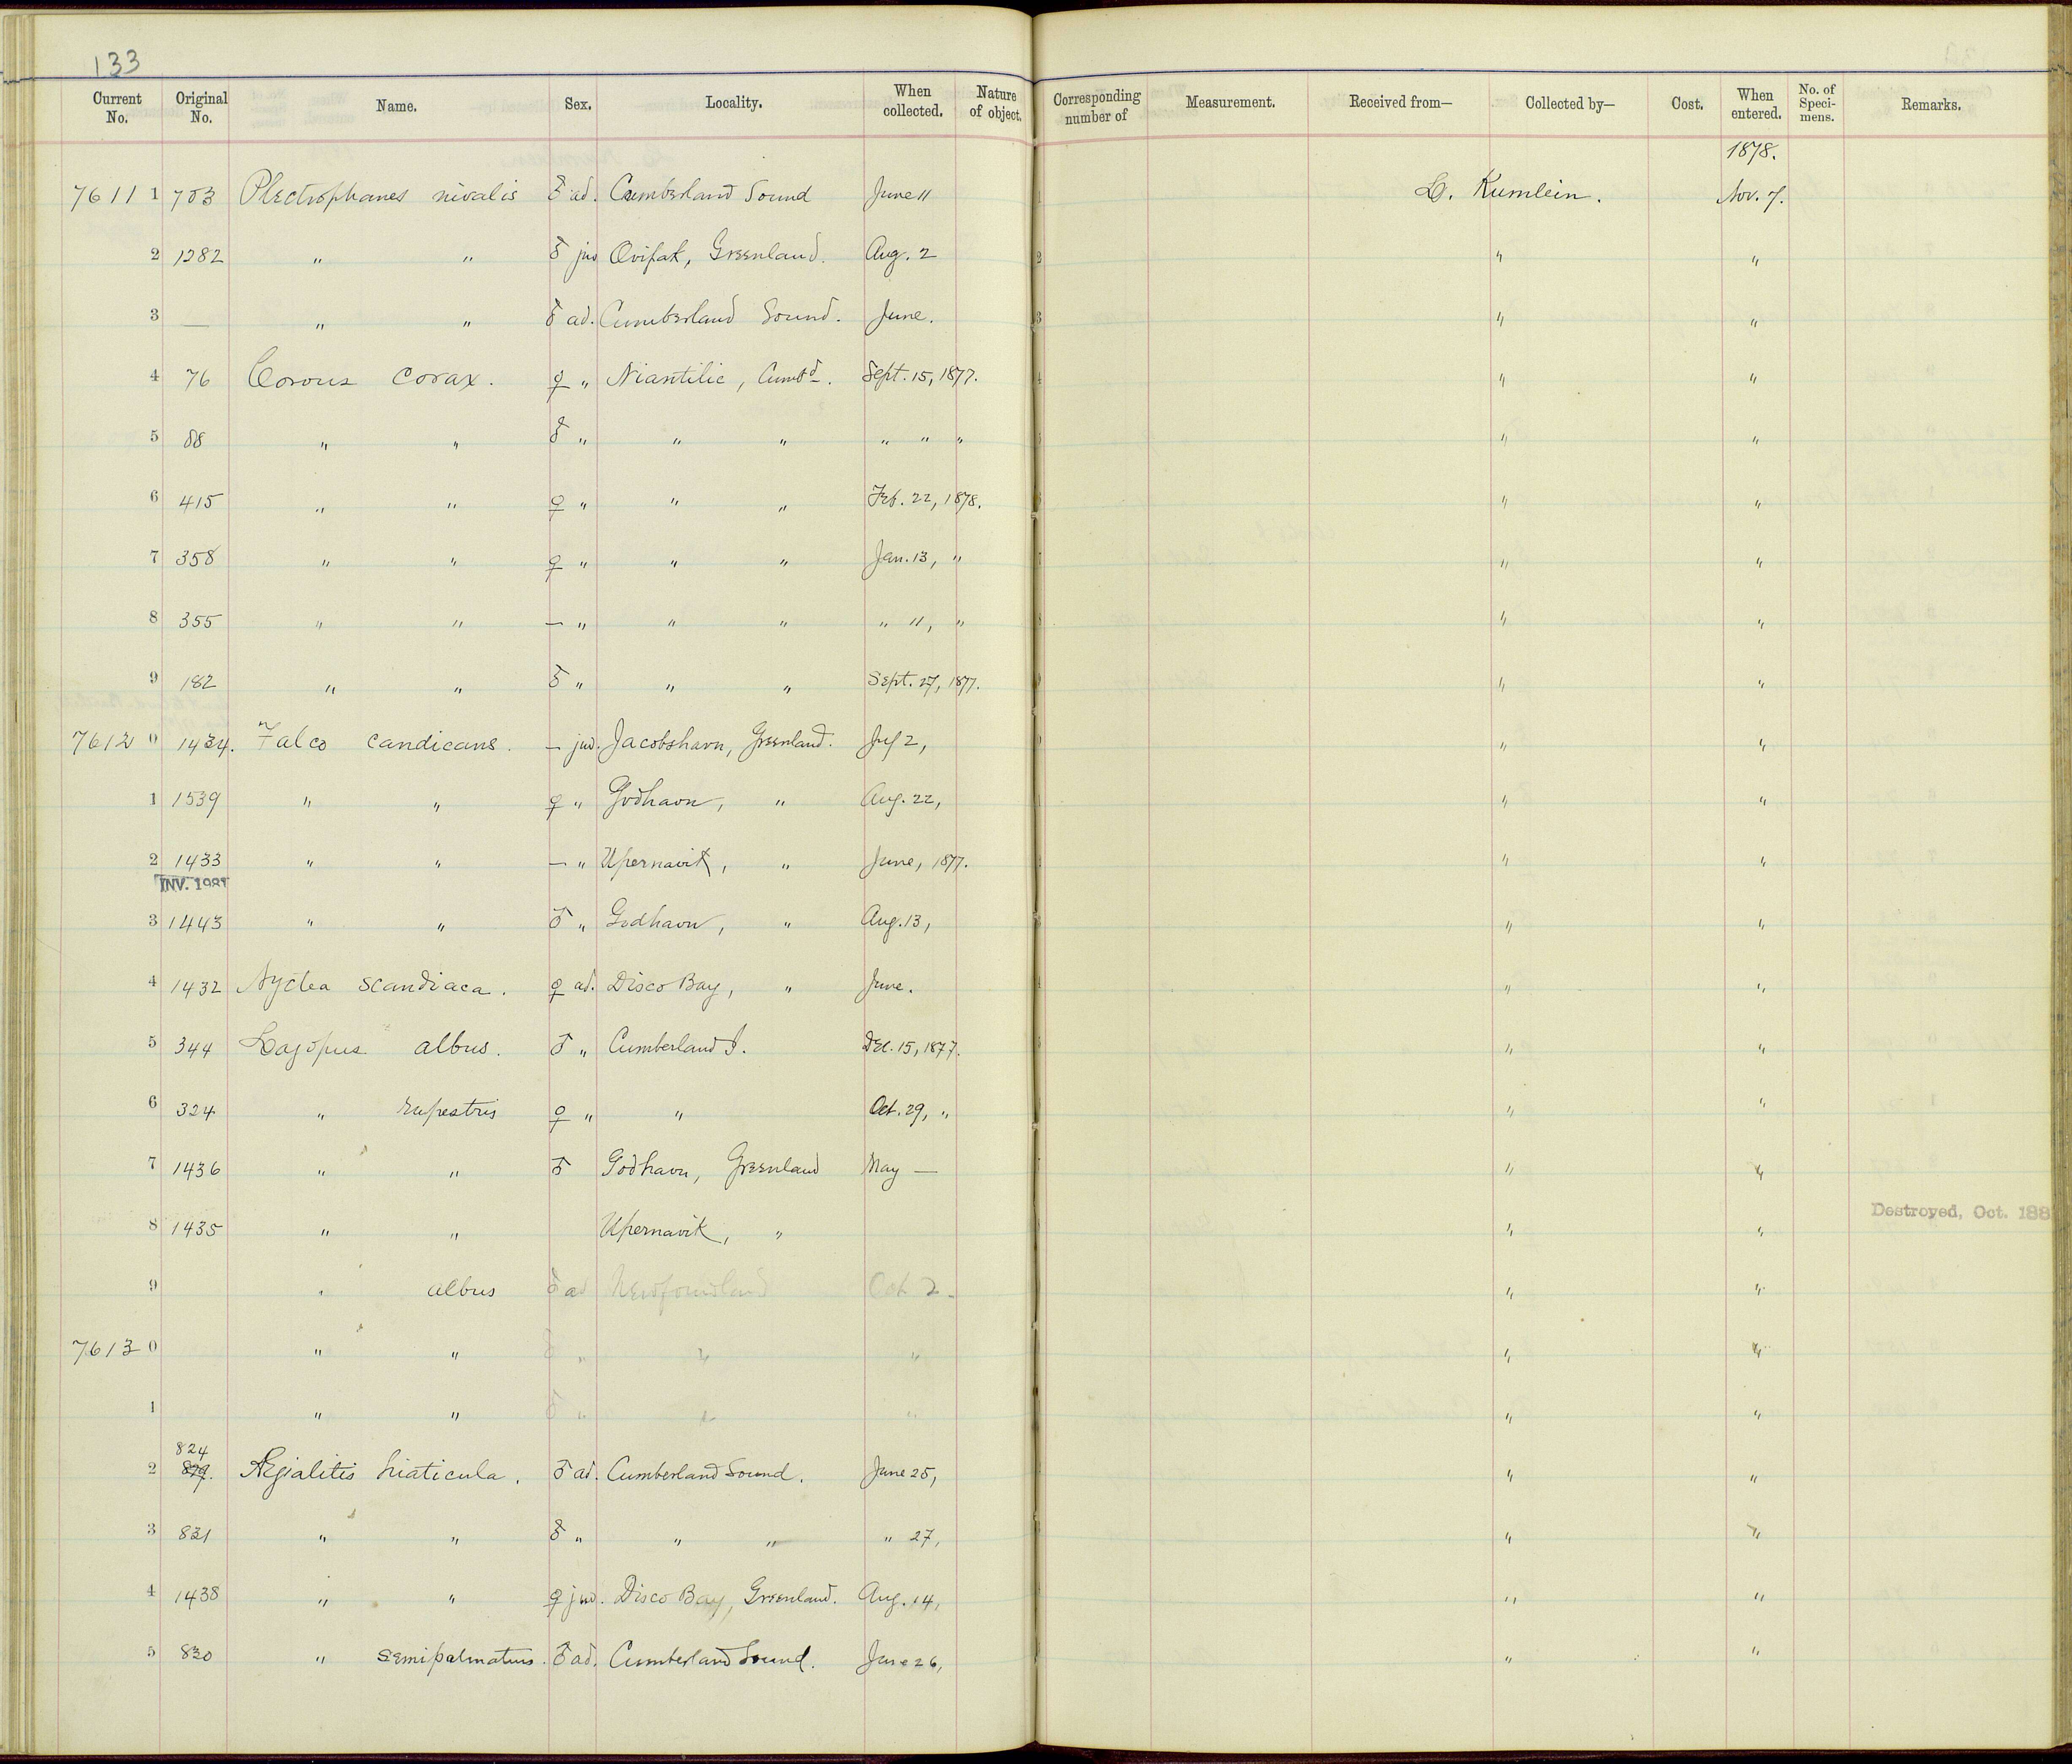 133
Current No. Original No. Name. Sex. Locality. When collected. Nature of object. Corresponding number of Measurement. Received from— Collected by— Cost. When entered. No. of Speci-mens. Remarks.
1878.
7611 1 703 Plectrophanes nivalis ♂ ad. Cumberland Sound June 11 L. Kumlein. Nov. 7.
2 1282 " " ♂ juv Ovifak, Greenland. Aug. 2 " "
3 — " " ♂ ad. Cumberland Sound. June. " "
4 76 Corvus corax. ♀ " Niantilic, Cumbd. Sept. 15, 1877. " "
5 88 " " ♂ " " " " " " " "
6 415 " " ♀ " " " Feb. 22, 1878. " "
7 358 " " ♀ " " " Jan. 13, " " "
8 355 " " — " " " " 11, " " "
9 182 " " ♂ " " " Sept. 27, 1877. " "
7612 0 1434. Falco candicans. — juv. Jacobshavn, Greenland. July 2, " "
1 1539 " " ♀ " Godhavn, " Aug. 22, " "
2 1433 " " — " Upernavik, " June, 1877. " "
INV. 1981
3 1443 " " ♂ " Godhavn, " Aug. 13, " "
4 1432 Nyctea scandiaca. ♀ ad. Disco Bay, " June. " "
5 344 Lagopus albus. ♂ " Cumberland I. Dec. 15, 1877. " "
6 324 " rupestris ♀ " " Oct. 29, " " "
7 1436 " " ♂ Godhavn, Greenland May — " "
8 1435 " " Upernavik, " " " Destroyed, Oct. 188
9 " albus ♂ ad Newfoundland Oct 2. " "
7613 0 " " ♂ " " " " "
1 " " ♂ " " " " "
824
2 829. Ægialitis hiaticula. ♂ ad. Cumberland Sound. June 25, " "
3 831 " " ♂ " " " " 27, " "
4 1438 " " ♀ juv. Disco Bay, Greenland. Aug. 14, " "
5 830 " semipalmatus. ♂ ad. Cumberland Sound. June 26, " "